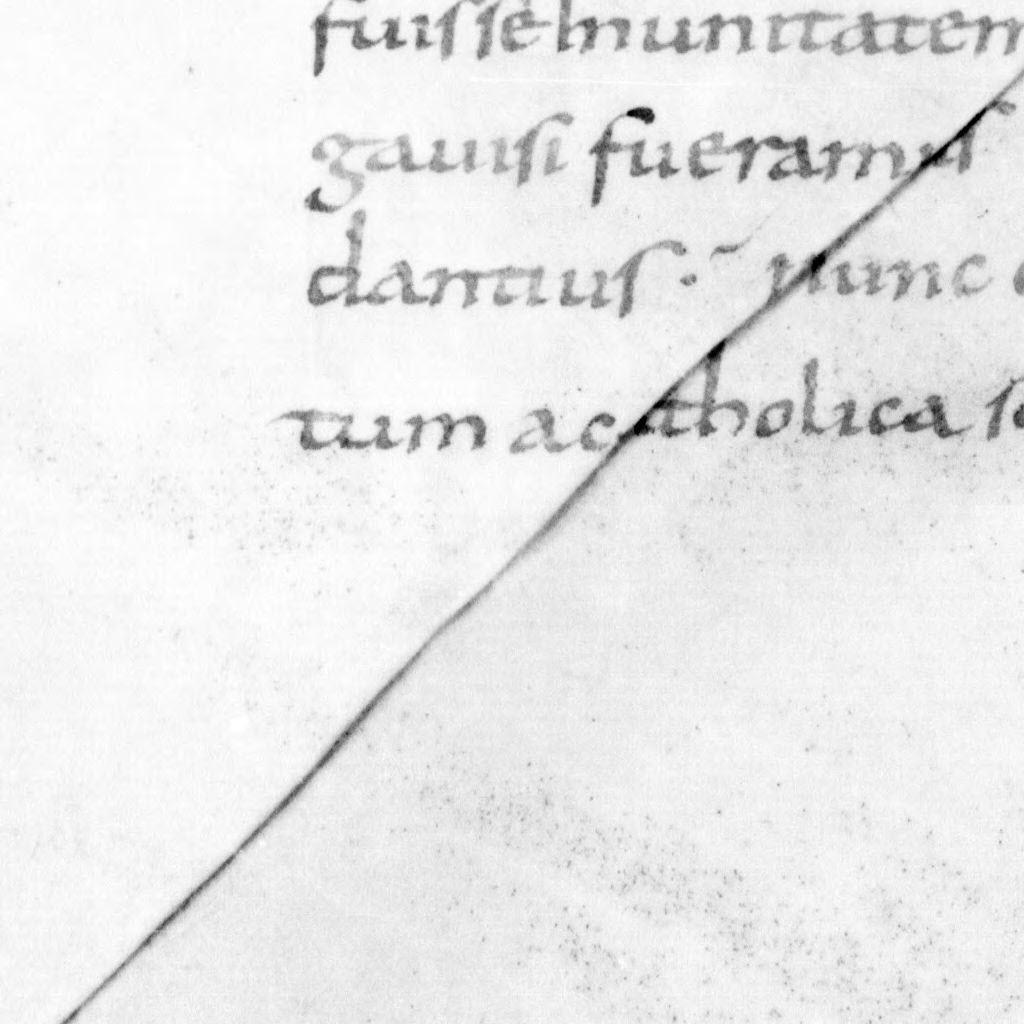 fuisse inunitatem
gauisi fueramus
dantius · nunc
tum accatholica